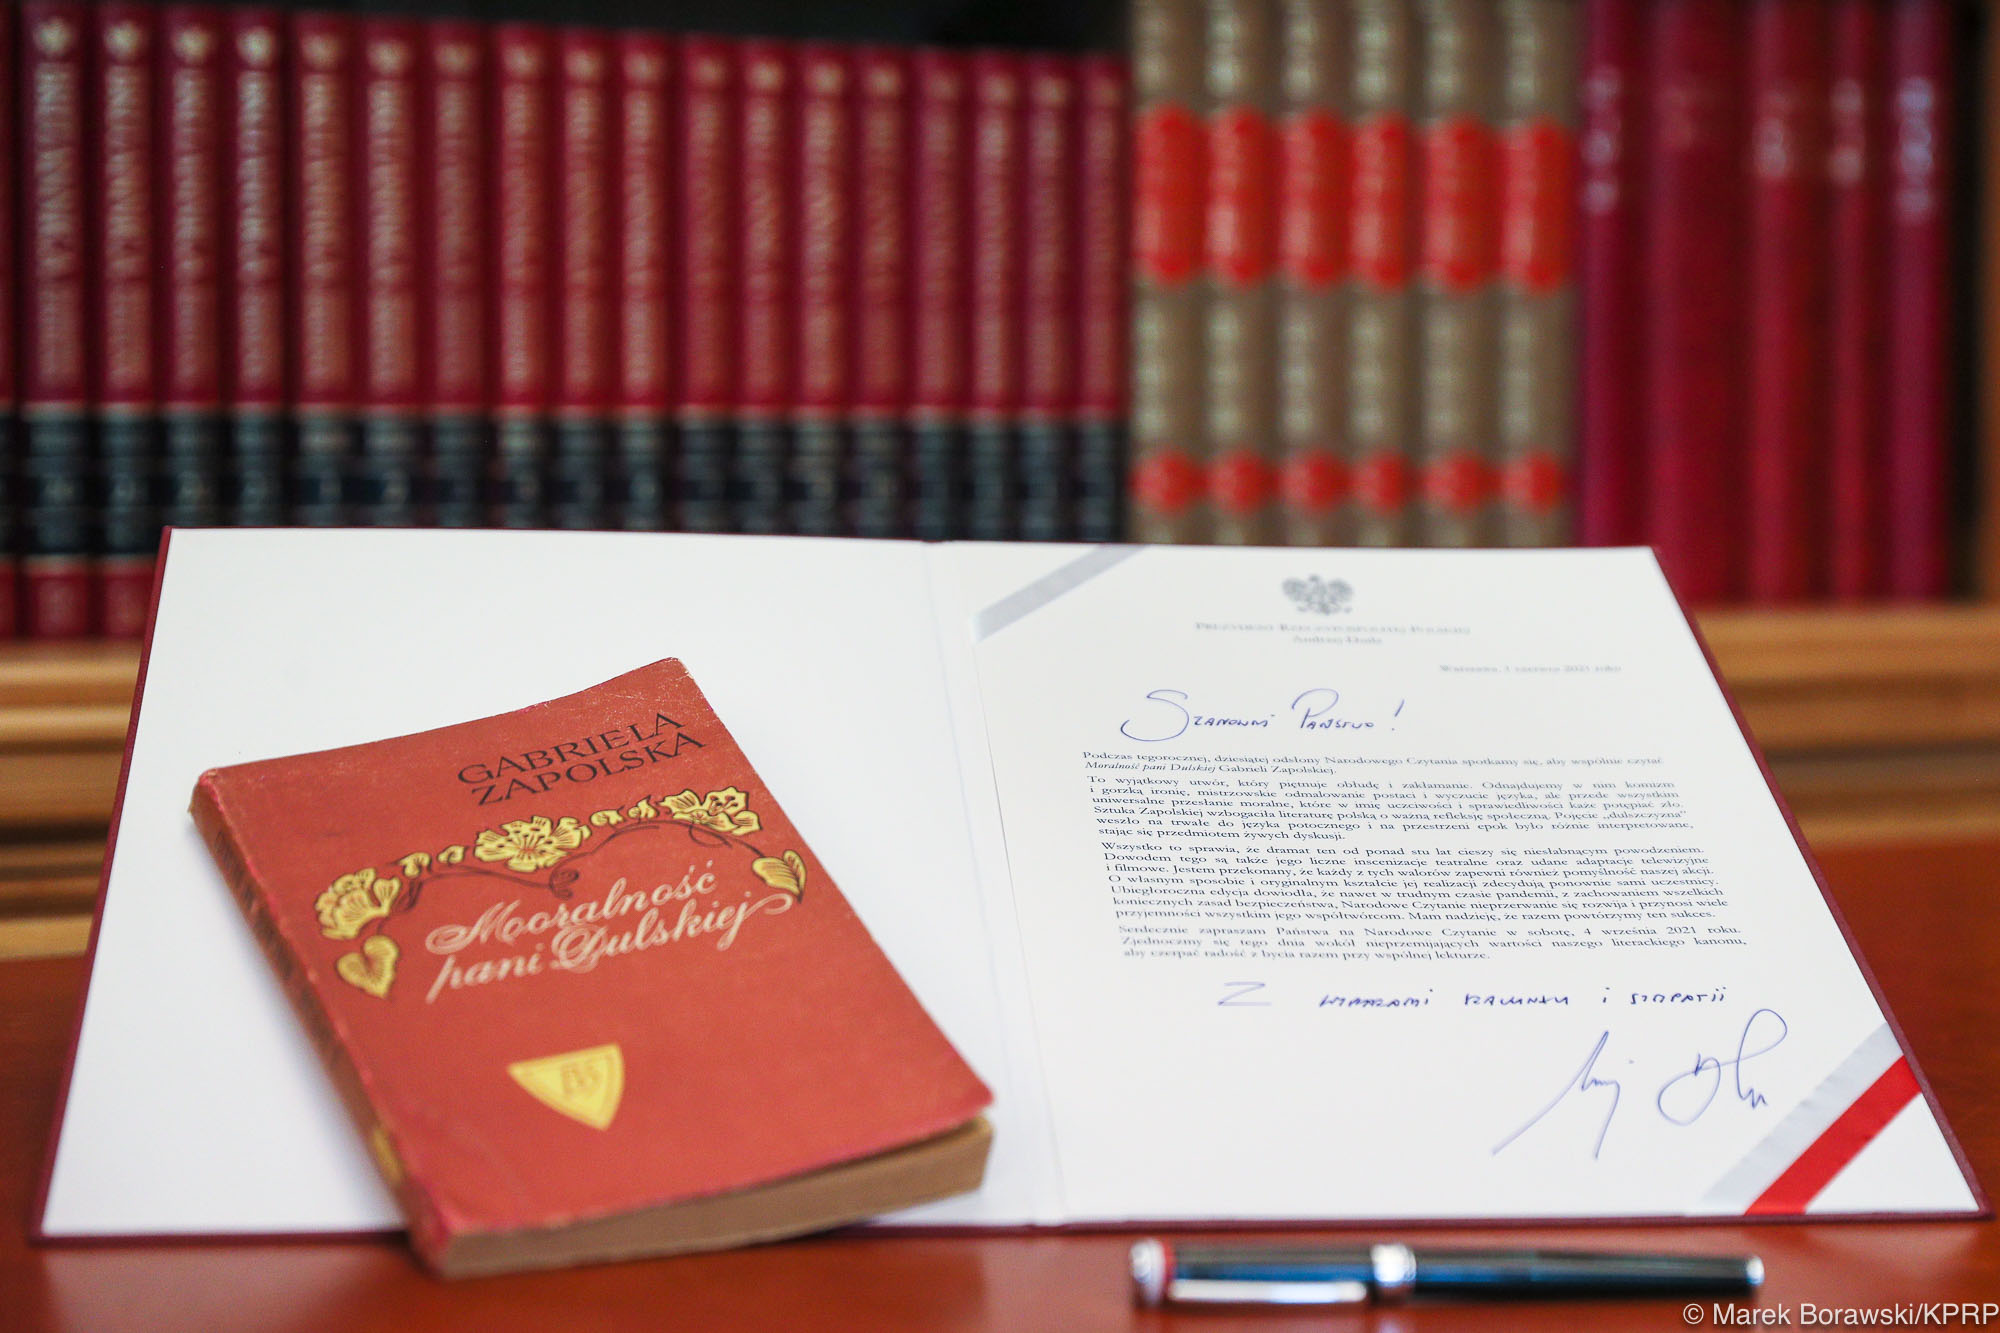 GABRIELA
ZAPOLSKA
Moralność
pani Dulskiej
PREZYDENT RZECZYPOSPOLITEJ POLSKIEJ
Andrzej Duda
Warszawa, 1 czerwca 2021 roku
Szanowni Państwo!
Podczas tegorocznej, dziesiątej odsłony Narodowego Czytania spotkamy się, aby wspólnie czytać
Moralność pani Dulskiej Gabrieli Zapolskiej.
To wyjątkowy utwór, który piętnuje obłudę i zakłamanie. Odnajdujemy w nim komizm
i gorzką ironię, mistrzowskie odmalowanie postaci i wyczucie języka, ale przede wszystkim
uniwersalne przesłanie moralne, które w imię uczciwości i sprawiedliwości każe potępiać zło.
Sztuka Zapolskiej wzbogaciła literaturę polską o ważną refleksję społeczną. Pojęcie „dulszczyzna”
weszło na trwałe do języka potocznego i na przestrzeni epok było różnie interpretowane,
stając się przedmiotem żywych dyskusji.
Wszystko to sprawia, że dramat ten od ponad stu lat cieszy się niesłabnącym powodzeniem.
Dowodem tego są także jego liczne inscenizacje teatralne oraz udane adaptacje telewizyjne
i filmowe. Jestem przekonany, że każdy z tych walorów zapewni również pomyślność naszej akcji.
O własnym sposobie i oryginalnym kształcie jej realizacji zdecydują ponownie sami uczestnicy.
Ubiegłoroczna edycja dowiodła, że nawet w trudnym czasie pandemii, z zachowaniem wszelkich
koniecznych zasad bezpieczeństwa, Narodowe Czytanie nieprzerwanie się rozwija i przynosi wiele
przyjemności wszystkim jego współtwórcom. Mam nadzieję, że razem powtórzymy ten sukces.
Serdecznie zapraszam Państwa na Narodowe Czytanie w sobotę, 4 września 2021 roku.
Zjednoczmy się tego dnia wokół nieprzemijających wartości naszego literackiego kanonu,
aby czerpać radość z bycia razem przy wspólnej lekturze.
Z wyrazami szacunku i sympatii
© Marek Borawski/KPRP